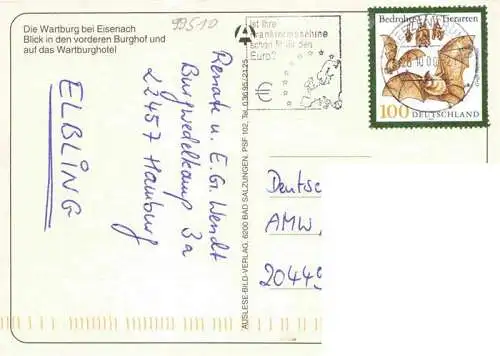 Die Wartburg bei Eisenach
Blick in den vorderen Burghof und
auf das Wartburghotel
99510
Ist Ihre
Frankiermaschine
schon fit für den
Euro?
€
Bedrohte Tierarten
100 DEUTSCHLAND
Renate u. E.G. Wendt
Burgwedelkamp 3a
22457 Hamburg
ELBLING
AUSLESE-BILD-VERLAG, 6200 BAD SALZUNGEN, PSF 102, Tel. 0 36 95/21 25
Deutsche
AMW,
20449